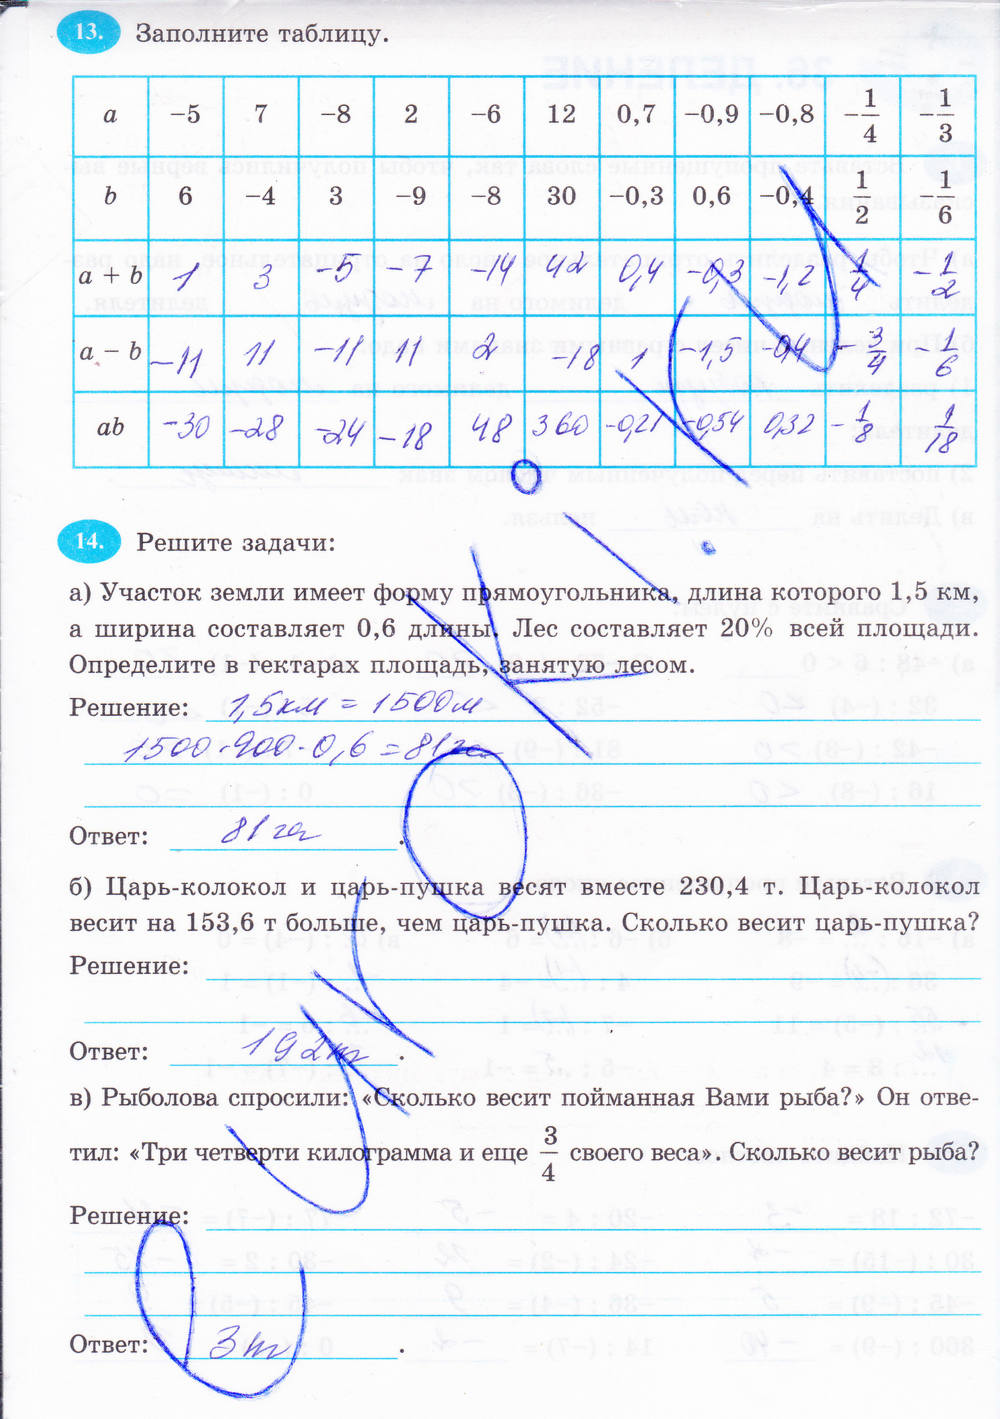 13. Заполните таблицу.
a −5 7 −8 2 −6 12 0,7 −0,9 −0,8 −1/4 −1/3
b 6 −4 3 −9 −8 30 −0,3 0,6 −0,4 1/2 −1/6
a + b 1 3 −5 −7 −14 42 0,4 −0,3 −1,2 1/4 −1/2
a − b −11 11 −11 11 2 −18 1 −1,5 −0,4 −3/4 −1/6
ab −30 −28 −24 −18 48 360 −0,21 −0,54 0,32 −1/8 1/18
14. Решите задачи:
а) Участок земли имеет форму прямоугольника, длина которого 1,5 км,
а ширина составляет 0,6 длины. Лес составляет 20% всей площади.
Определите в гектарах площадь, занятую лесом.
Решение: 1,5км = 1500м
1500·900·0,6 = 81га
Ответ: 81га.
б) Царь-колокол и царь-пушка весят вместе 230,4 т. Царь-колокол
весит на 153,6 т больше, чем царь-пушка. Сколько весит царь-пушка?
Решение:
Ответ: 192т.
в) Рыболова спросили: «Сколько весит пойманная Вами рыба?» Он отве-
тил: «Три четверти килограмма и еще 3/4 своего веса». Сколько весит рыба?
Решение:
Ответ: 3т.